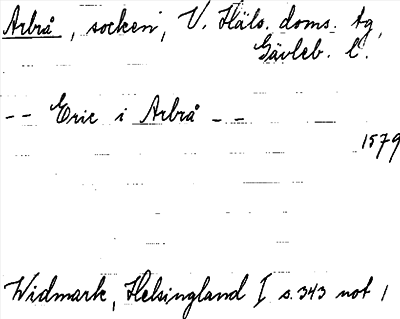 Arbrå, socken, V. Häls. doms. tg,
Gävleb. l.
-- Eric i Arbrå --
1579
Widmark, Helsingland I s. 343 not 1